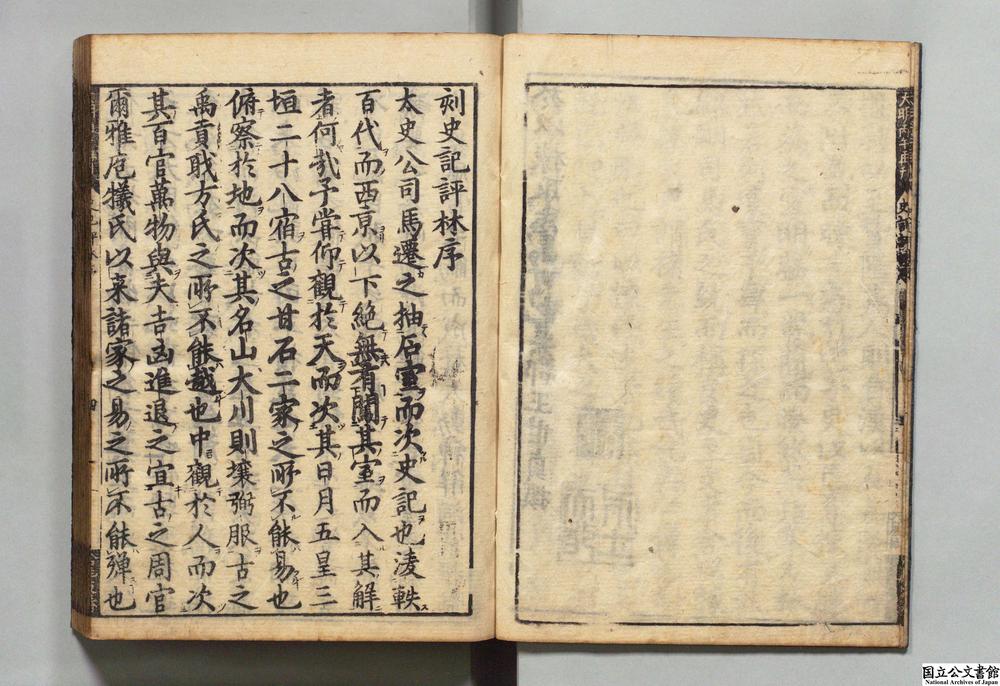 刻史記評林序
太史公司馬遷之抽石室而次史記也凌軼
百代而西京以下絕無有闖其室而入其解
者何哉子甞仰觀於天而次其日月五星三
垣二十八宿古之甘石二家之所不能易也
俯察於地而次其名山大川則壤弼服古之
禹貢職方氏之所不能越也中觀於人而次
其百官萬物與夫吉凶進退之宜古之周官
爾雅庖犧氏以来諸家之易之所不能殫也
国立公文書館
National Archives of Japan